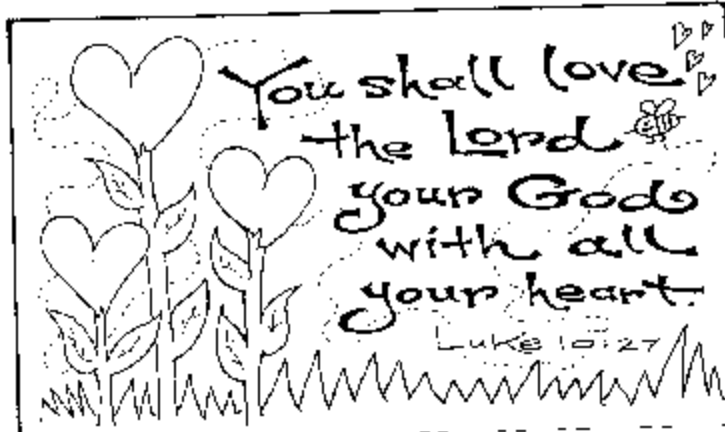 You shall love
the Lord
your God
with all
your heart.
Luke 10:27